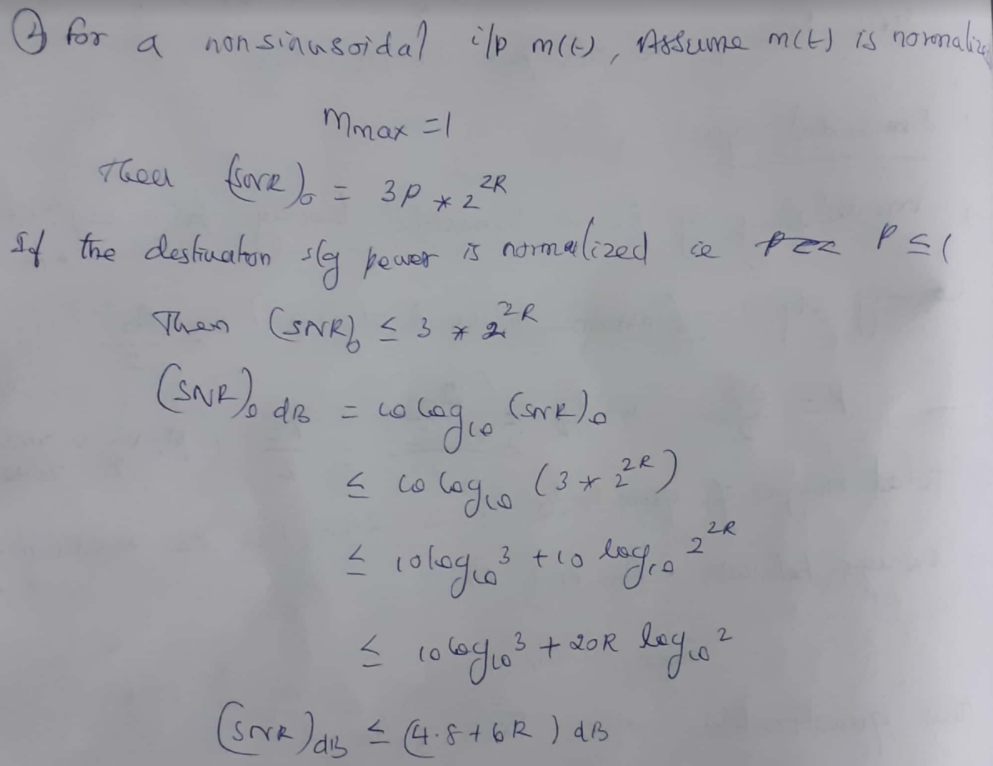 ② for a nonsinusoidal i/p m(t), Assume m(t) is normaliz
Mmax = 1
Then (SNR)₀ = 3P * 2^2R
If the destination sig power is normalized ie P ≤ 1
Then (SNR)₀ ≤ 3 * 2^2R
(SNR)₀ dB = 10 log₁₀ (SNR)₀
≤ 10 log₁₀ (3 * 2^2R)
≤ 10 log₁₀ 3 + 10 log₁₀ 2^2R
≤ 10 log₁₀ 3 + 20R log₁₀ 2
(SNR)dB ≤ (4.8 + 6R) dB